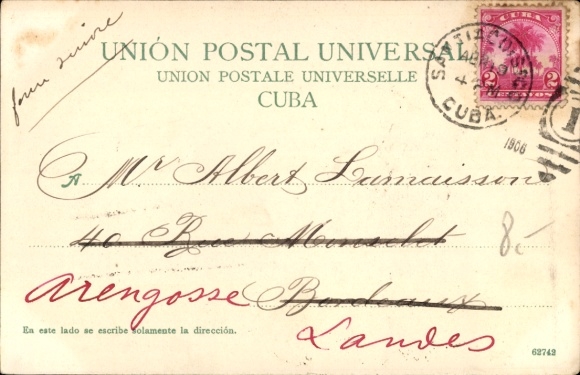 faire suivre
UNIÓN POSTAL UNIVERSAL
UNION POSTALE UNIVERSELLE
CUBA
CUBA
2 2
CENTAVOS
SANTIAGO DE
4
CUBA.
1
1906
A Mr Albert Lamaisson
40 Rue Monselet
8.-
Arengosse Bordeaux
Landes
En este lado se escribe solamente la dirección.
62742